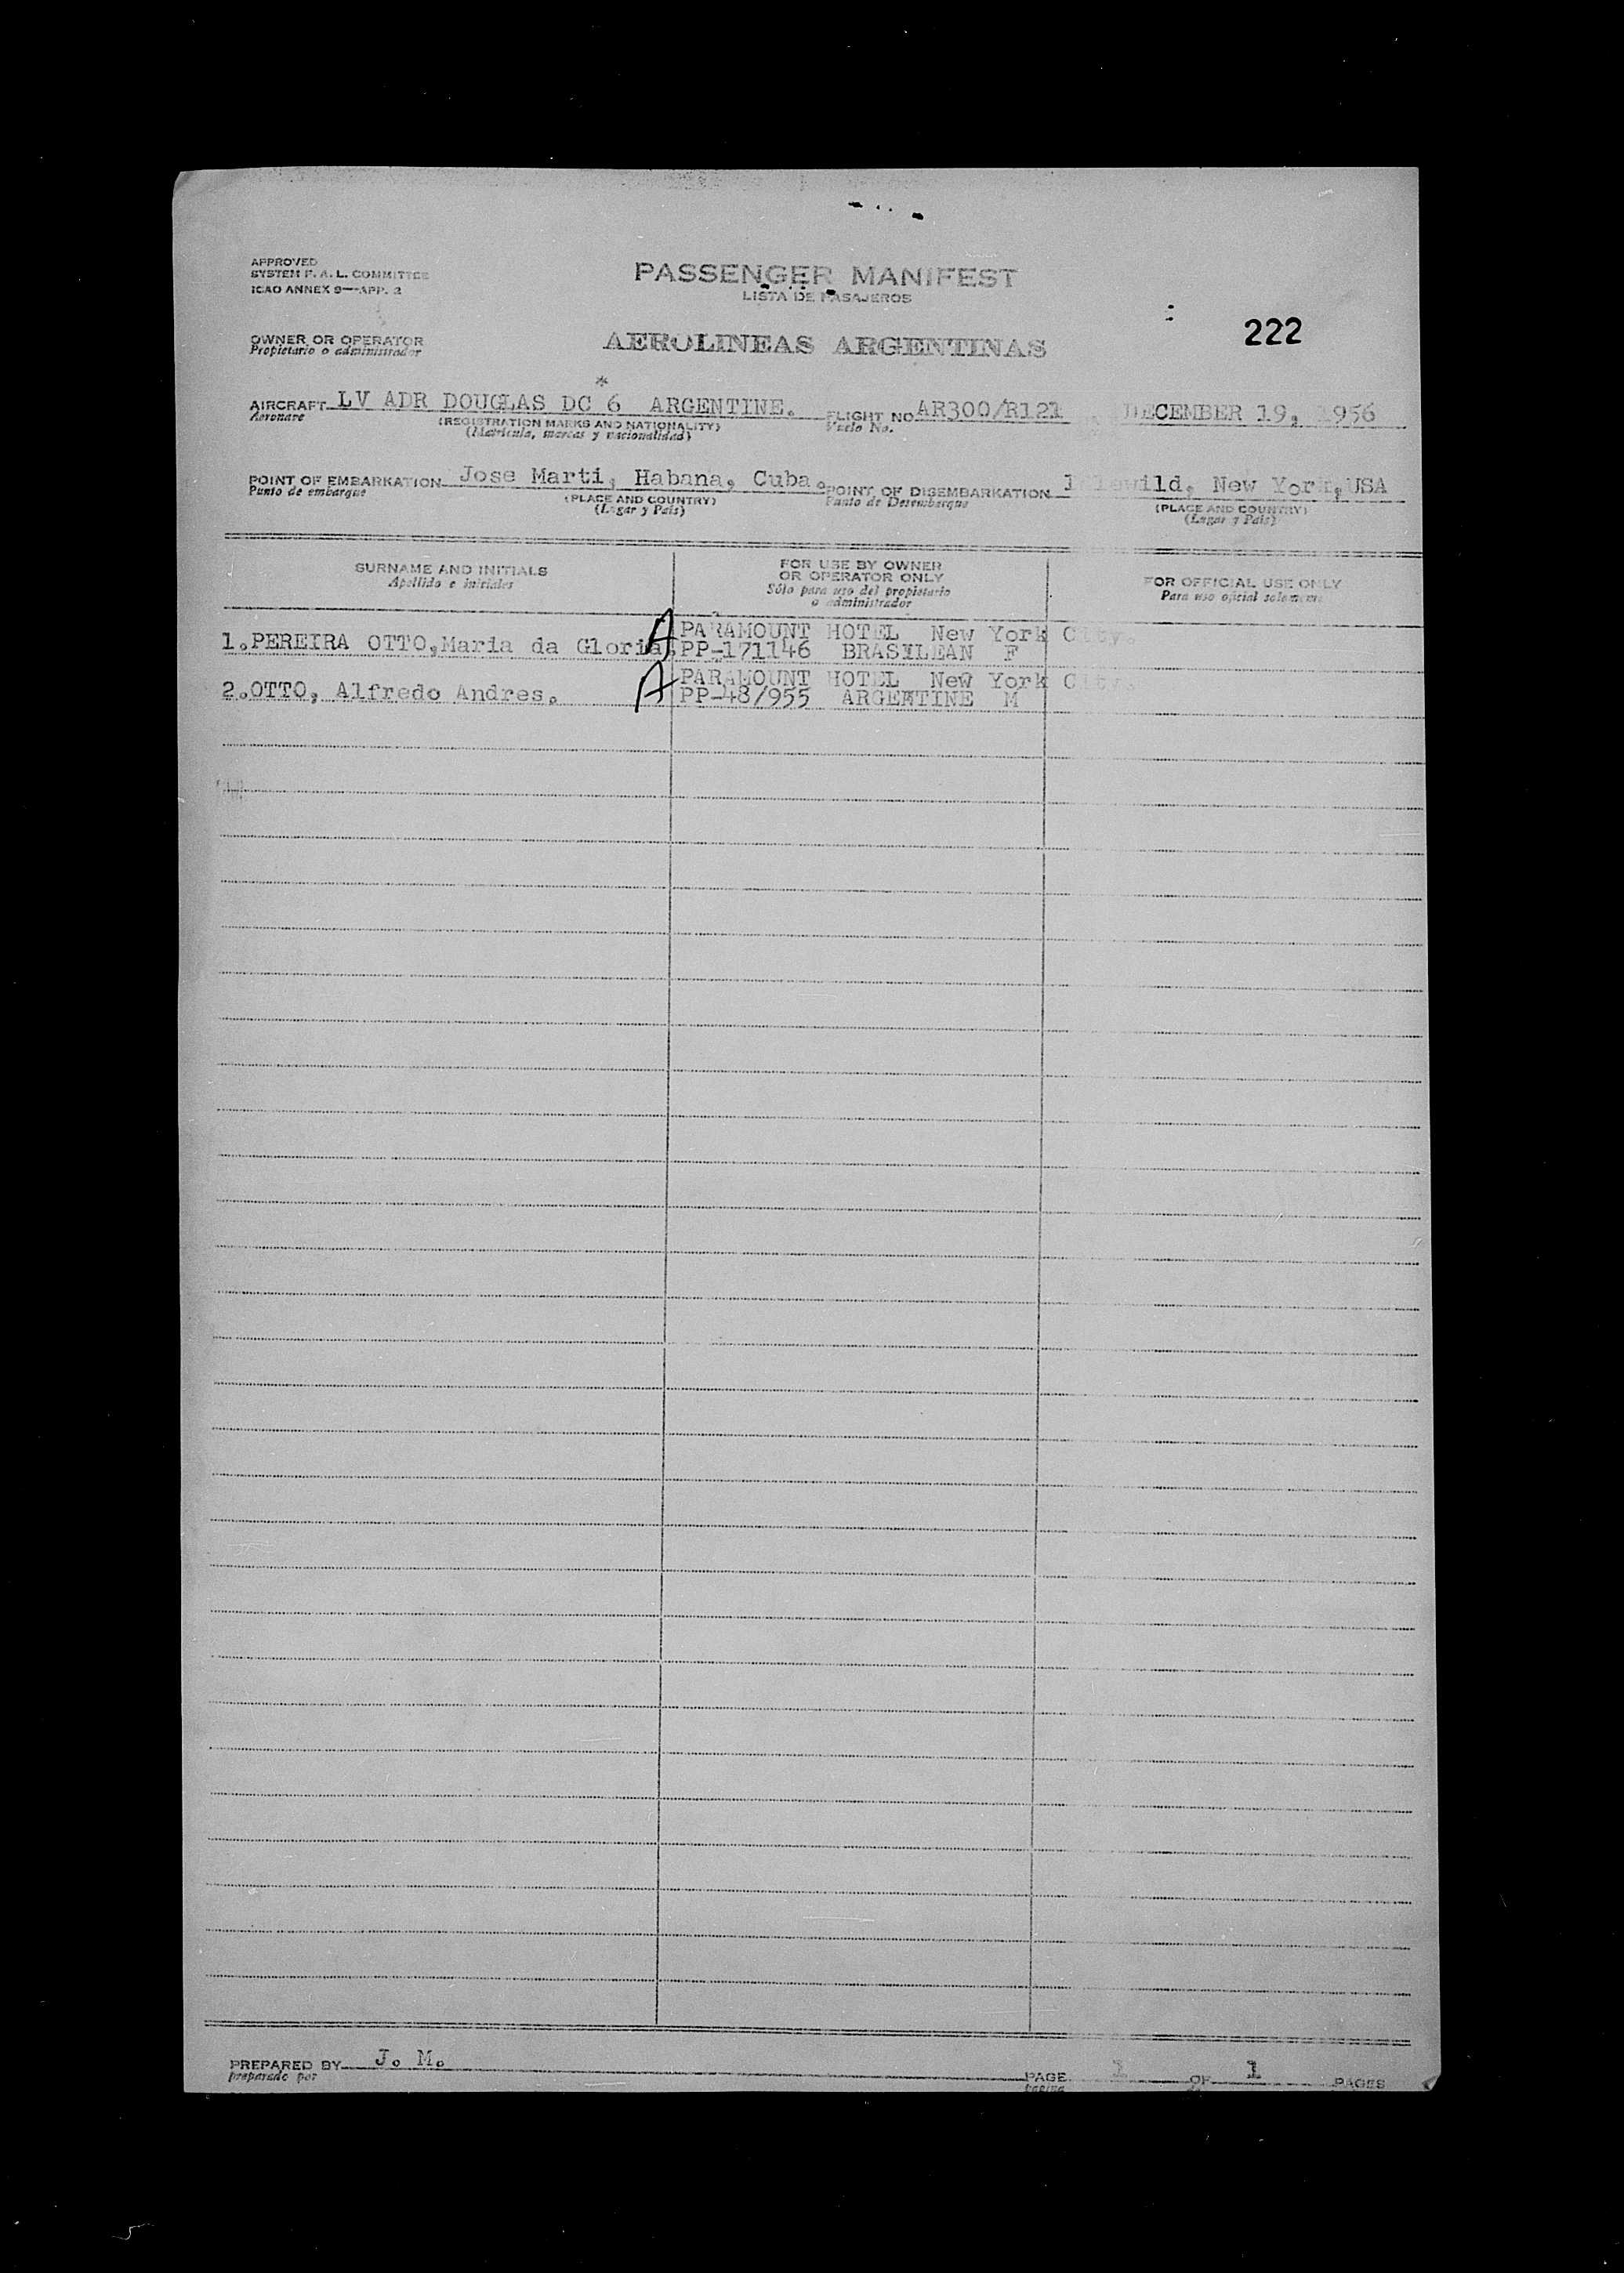 APPROVED
SYSTEM F. A. L. COMMITTEE
ICAO ANNEX 9—APP. 2
PASSENGER MANIFEST
LISTA DE PASAJEROS
222
OWNER OR OPERATOR
Propietario o administrador
AEROLINEAS ARGENTINAS
*
AIRCRAFT LV ADR DOUGLAS DC 6 ARGENTINE. FLIGHT NO AR300/R121 , DECEMBER 19, 1956
Aeronave (REGISTRATION MARKS AND NATIONALITY) Vuelo No.
(Matricula, marcas y nacionalidad)
POINT OF EMBARKATION Jose Marti, Habana, Cuba. POINT OF DISEMBARKATION Idlewild, New York, USA
Punto de embarque (PLACE AND COUNTRY) Punto de Desembarque (PLACE AND COUNTRY)
(Lugar y Pais) (Lugar y Pais)
SURNAME AND INITIALS
Apellido e iniciales
FOR USE BY OWNER
OR OPERATOR ONLY
Sólo para uso del propietario
o administrador
FOR OFFICIAL USE ONLY
Para uso oficial solamente
A PARAMOUNT HOTEL New York City.
1.PEREIRA OTTO,Maria da Gloria. PP-171146 BRASILEAN F
A PARAMOUNT HOTEL New York City.
2.OTTO, Alfredo Andres. PP-48/955 ARGENTINE M
PREPARED BY J. M.
preparado por
PAGE 1 OF 1 PAGES
pagina